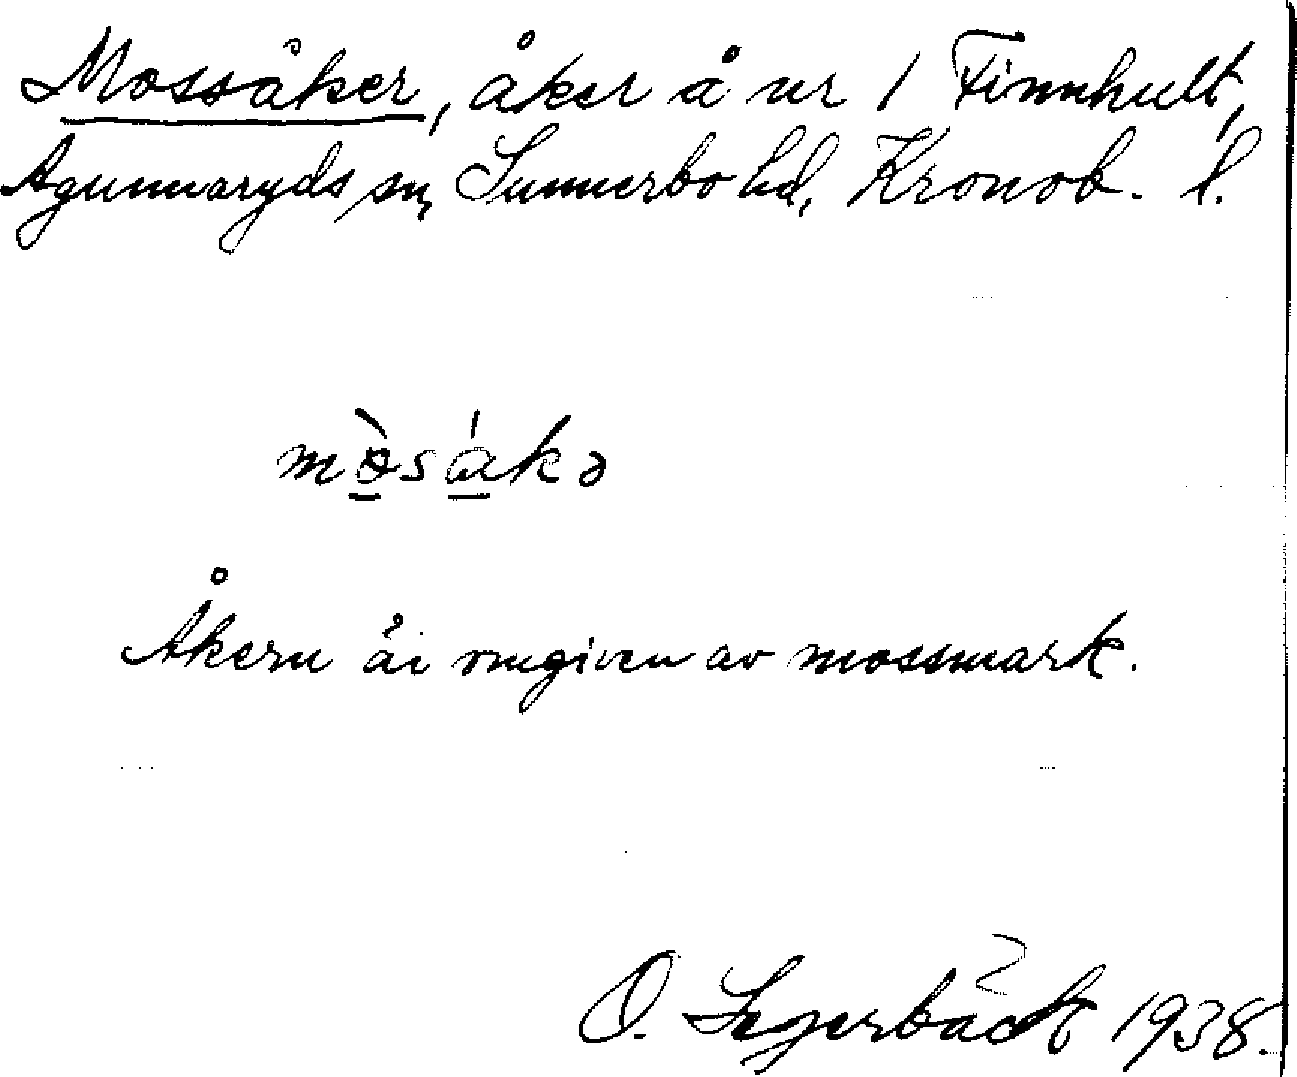 Mossåker, åker å nr 1 Finnhult,
Agunnaryds sn, Sunnerbo hd, Kronob. l.
mòsákə
Åkern är omgiven av mossmark.
O. Segerbäck 1938.